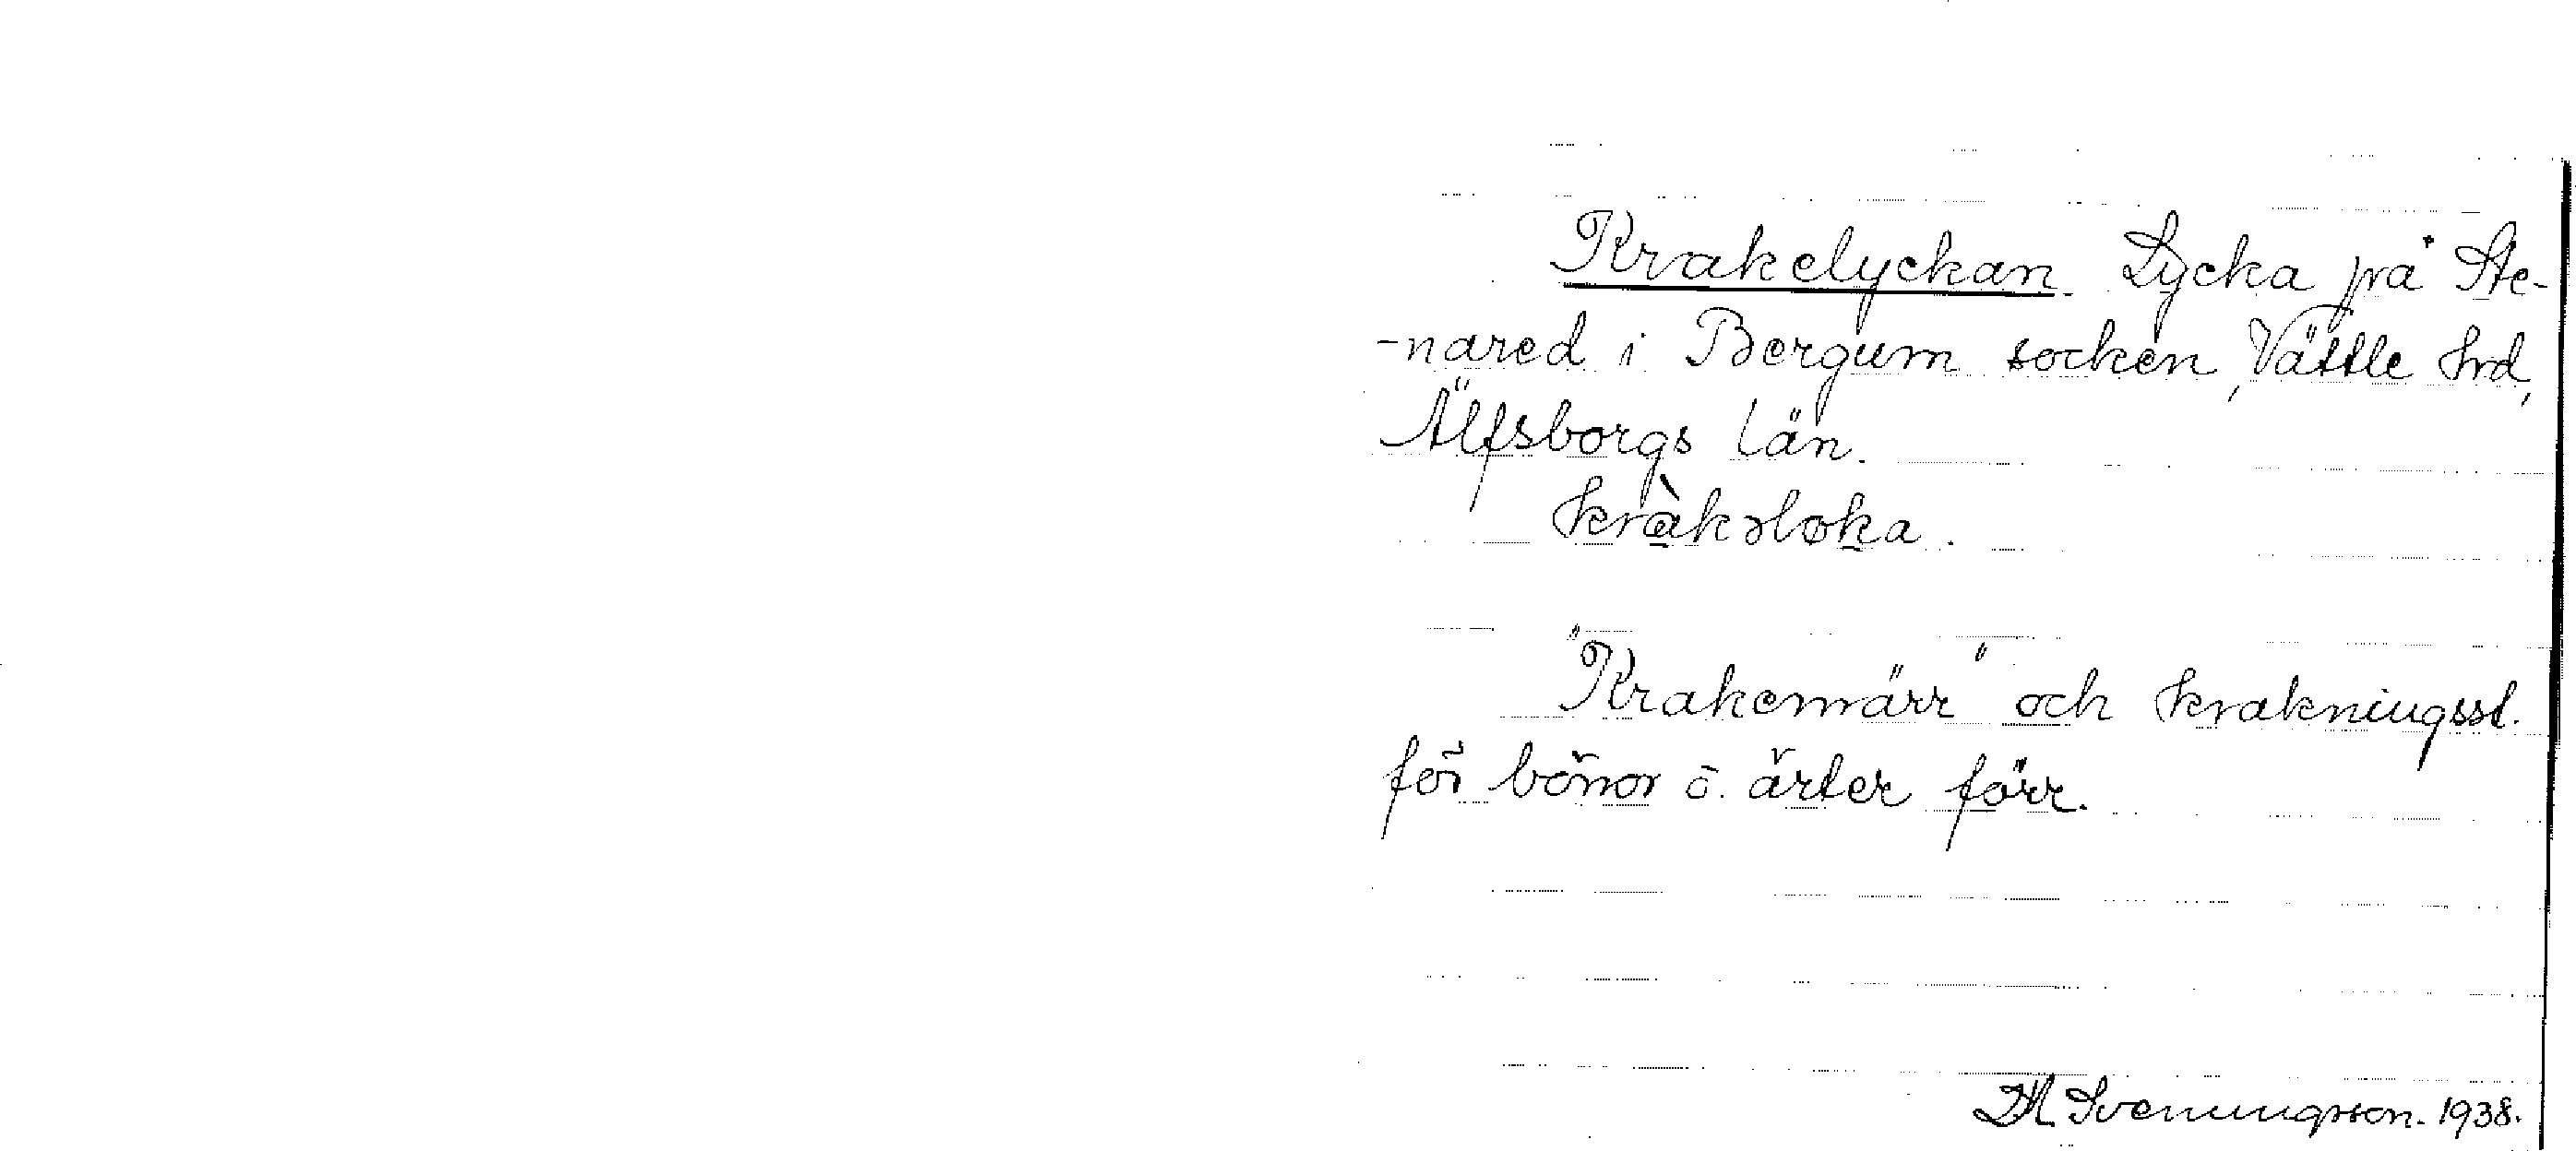 Krakelyckan. Lycka på Ste-
-nared i Bergum socken, Vättle hrd,
Älfsborgs län.
kràkəløka.
"Krakemärr" och krakningsst.
för bönor o. ärter förr.
Sveningsson. 1938.